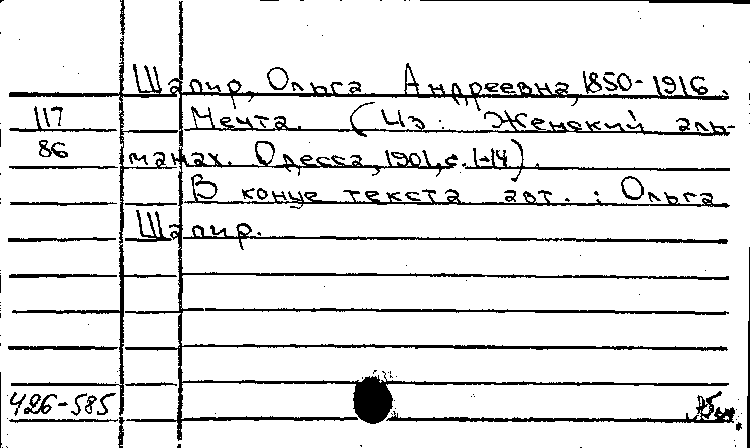 Шапир, Ольга Андреевна, 1850-1916.
117 Мечта. (Из: Женский аль-
86 манах. Одесса, 1901, с. 1-14).
В конце текста авт. : Ольга
Шапир.
426-585